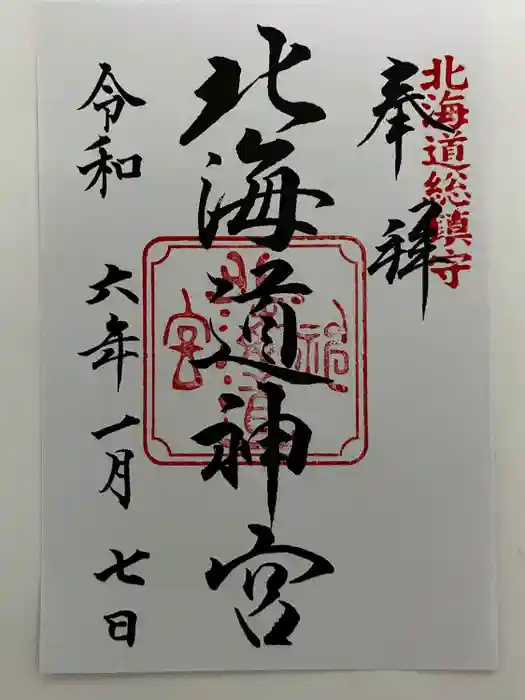 北海道総鎮守
奉拝
北海道神宮
令和六年一月七日